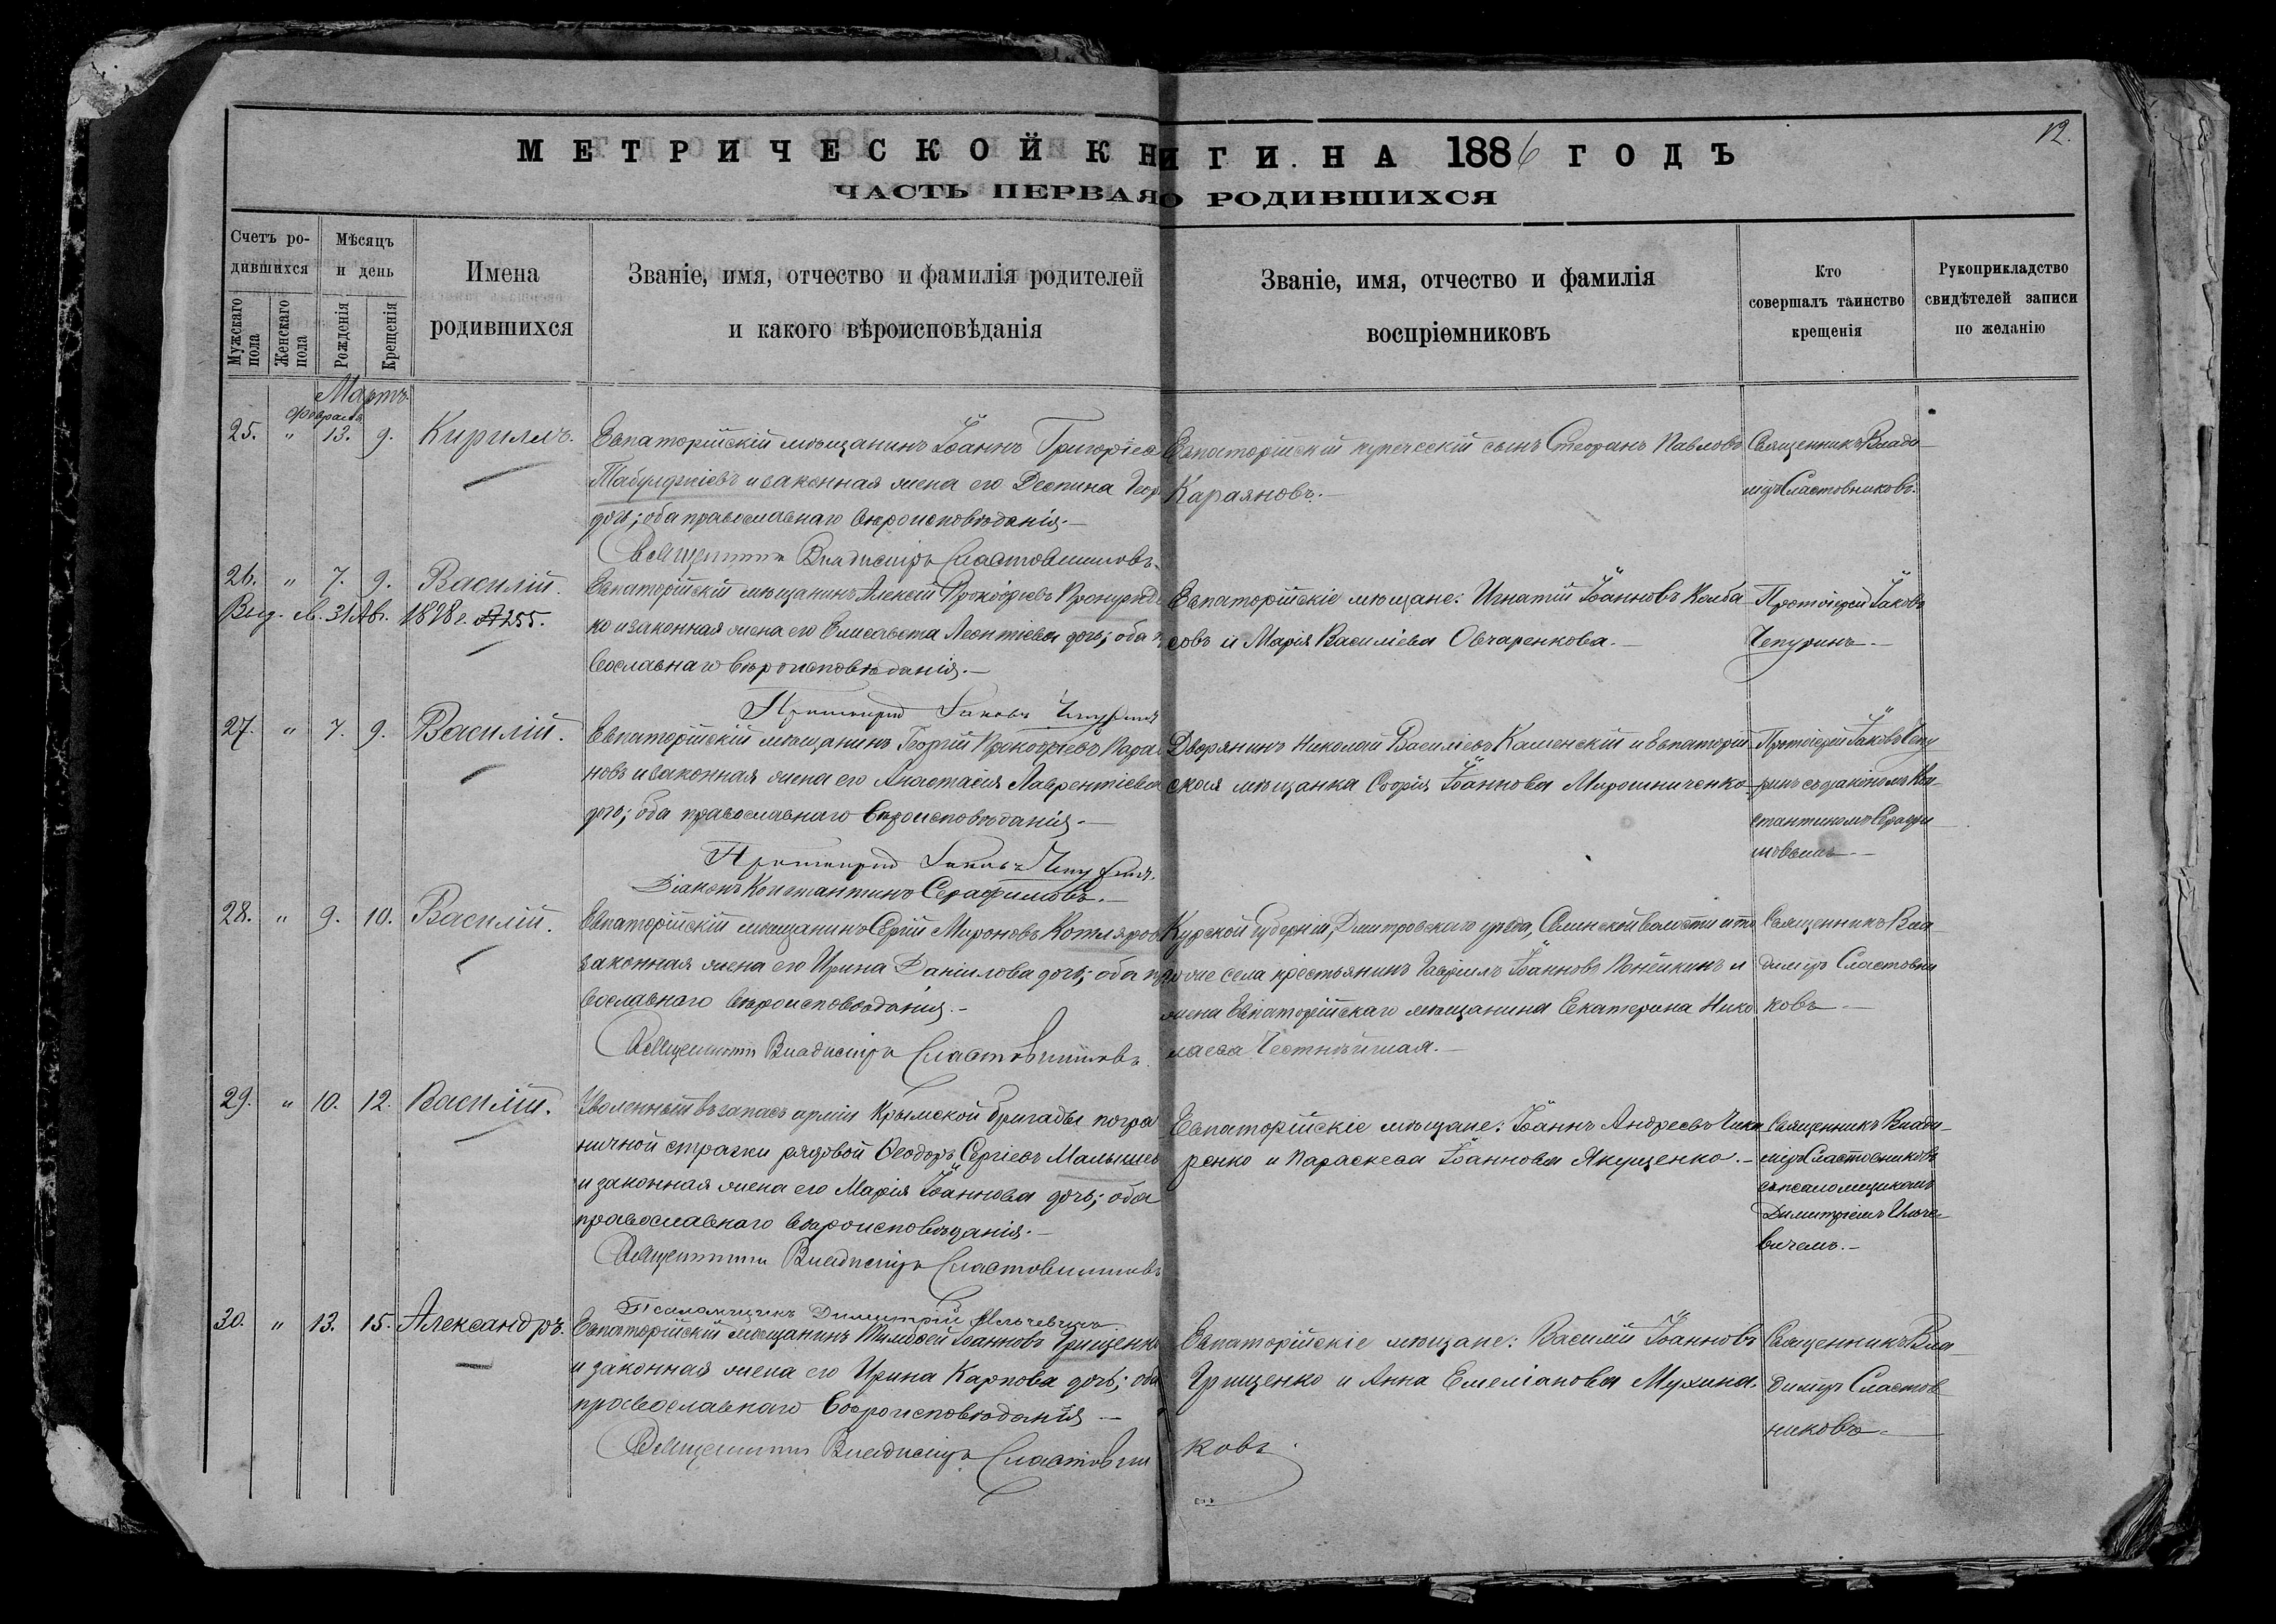 12.
МЕТРИЧЕСКОЙ КНИГИ НА 1886 ГОДЪ
ЧАСТЬ ПЕРВАЯ О РОДИВШИХСЯ
Счетъ ро-
дившихся
Мужскаго
пола
Женскаго
пола
Мѣсяцъ
и день
Рожденія
Крещенія
Имена
родившихся
Званіе, имя, отчество и фамилія родителей
и какого вѣроисповѣданія
Званіе, имя, отчество и фамилія
воспріемниковъ
Кто
совершалъ таинство
крещенія
Рукоприкладство
свидѣтелей записи
по желанію
Мартъ.
Февраль
25. " 13. 9. Кириллъ.
Евпаторійскій мѣщанинъ Іоаннъ Григоріев
Табулджіевъ и законная жена его Деспина Геор
дочь; оба православнаго вѣроисповѣданія.—
Священникъ Владиміръ Сластовниковъ.
Евпаторійскій купеческій сынъ Стефанъ Павловъ
Караяновъ.—
Священникъ Влади-
міръ Сластовниковъ.
26. " 7. 9. Василій.
Выд. м. 31 Ав. 1898 г. № 255.
Евпаторійскій мѣщанинъ Алексій Прокофіевъ
ко и законная жена его Елисавета Леонтіева дочь; оба п
вославнаго вѣроисповѣданія.—
Протоіерей Іаковъ Чепуринъ
Евпаторійскіе мѣщане: Игнатій Іоанновъ Колба
совъ и Марія Василіева Овчаренкова.—
Протоіерей Іаковъ
Чепуринъ.—
27. " 7. 9. Василій.
Евпаторійскій мѣщанинъ Георгій Прокофіевъ
новъ и законная жена его Анастасія Лаврентіева
дочь; оба православнаго вѣроисповѣданія.—
Протоіерей Іаковъ Чепуринъ.
Діаконъ Константинъ Серафимовъ.—
Дворянинъ Николай Василіевъ Каменскій и Евпаторій
ская мѣщанка Софія Іоаннова Мирошниченко
Протоіерей Іаковъ Чепу
ринъ съ діакономъ Кон-
стантиномъ Серафи
мовымъ—
28. " 9. 10. Василій.
Евпаторійскій мѣщанинъ Сергій Мироновъ Котляров
законная жена его Ирина Даніилова дочь; оба пра
вославнаго вѣроисповѣданія.—
Священникъ Владиміръ Сластовниковъ.
Курской губерніи, Дмитровскаго уѣзда, волости и то
го же села крестьянинъ Гавріилъ Іоанновъ Понейкинъ и
жена Евпаторійскаго мѣщанина Екатерина Нико
лаева Честнѣйшая.—
Священникъ Вла
диміръ Сластовни
ковъ—
29. " 10. 12. Василій.
Уволенный въ запасъ арміи Крымской бригады погра
ничной стражи рядовой Ѳеодоръ Сергіевъ Малышев
и законная жена его Марія Іоаннова дочь; оба
православнаго вѣроисповѣданія.—
Священникъ Владиміръ Сластовниковъ
Псаломщикъ Димитрій Ильчевичъ
Евпаторійскіе мѣщане: Іоаннъ Андреевъ
ренко и Параскева Іоаннова Якущенко.—
Священникъ Влади-
міръ Сластовниковъ
съ псаломщикомъ
Димитріемъ Ильче-
вичемъ.—
30. " 13. 15. Александръ.
Евпаторійскій мѣщанинъ Тимофей Іоанновъ Грищенко
и законная жена его Ирина Карпова дочь; оба
православнаго вѣроисповѣданія—
Священникъ Владиміръ Сластовни ковъ.
Евпаторійскіе мѣщане: Василій Іоанновъ
Грищенко и Анна Емеліанова Мухина.
Священникъ Вла-
диміръ Сластов-
никовъ—